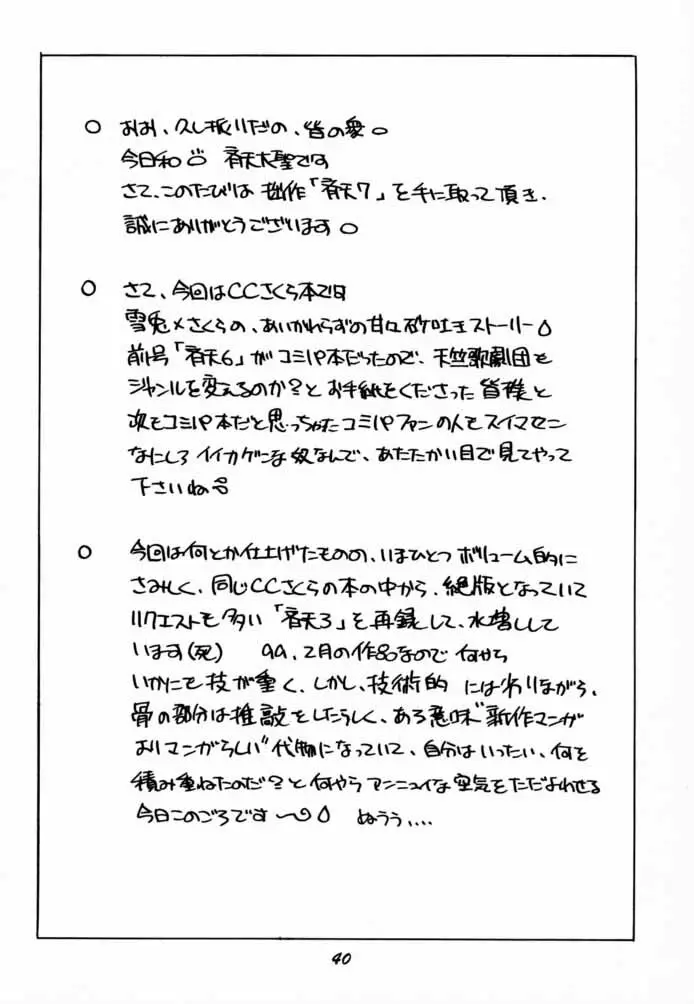 ○ おお、久し振りだの、皆の衆。
今日和 斉天大聖です
さて、このたびは拙作「斉天7」を手に取って頂き、
誠にありがとうございます。
○ さて、今回はCCさくら本です
雪兎×さくらの、あいかわらずの甘々砂吐きストーリー
前号「斉天6」がコミパ本だったので、天竺歌劇団も
ジャンルを変えるのか?とお手紙をくださった皆様と
次もコミパ本だと思っちゃたコミパファンの人もスイマセン
なにしろイイカゲンな奴なんで、あたたかい目で見てやって
下さいね
○ 今回は何とか仕上げたものの、いまひとつボリューム的に
さみしく、同じCCさくらの本の中から、絶版となっていて
リクエストも多い「斉天3」を再録して、水増しして
います(死) 99.2月の作品なので何やら
いかにも技が重く、しかし、技術的には劣りながら、
骨の部分は推敲をしたらしく、ある意味"新作マンガ
よりマンガらしい"代物になっていて、自分はいったい、何を
積み重ねたのだ?と何やらアンニュイな空気をただよわせる
今日このごろです〜 ぬうう....
40